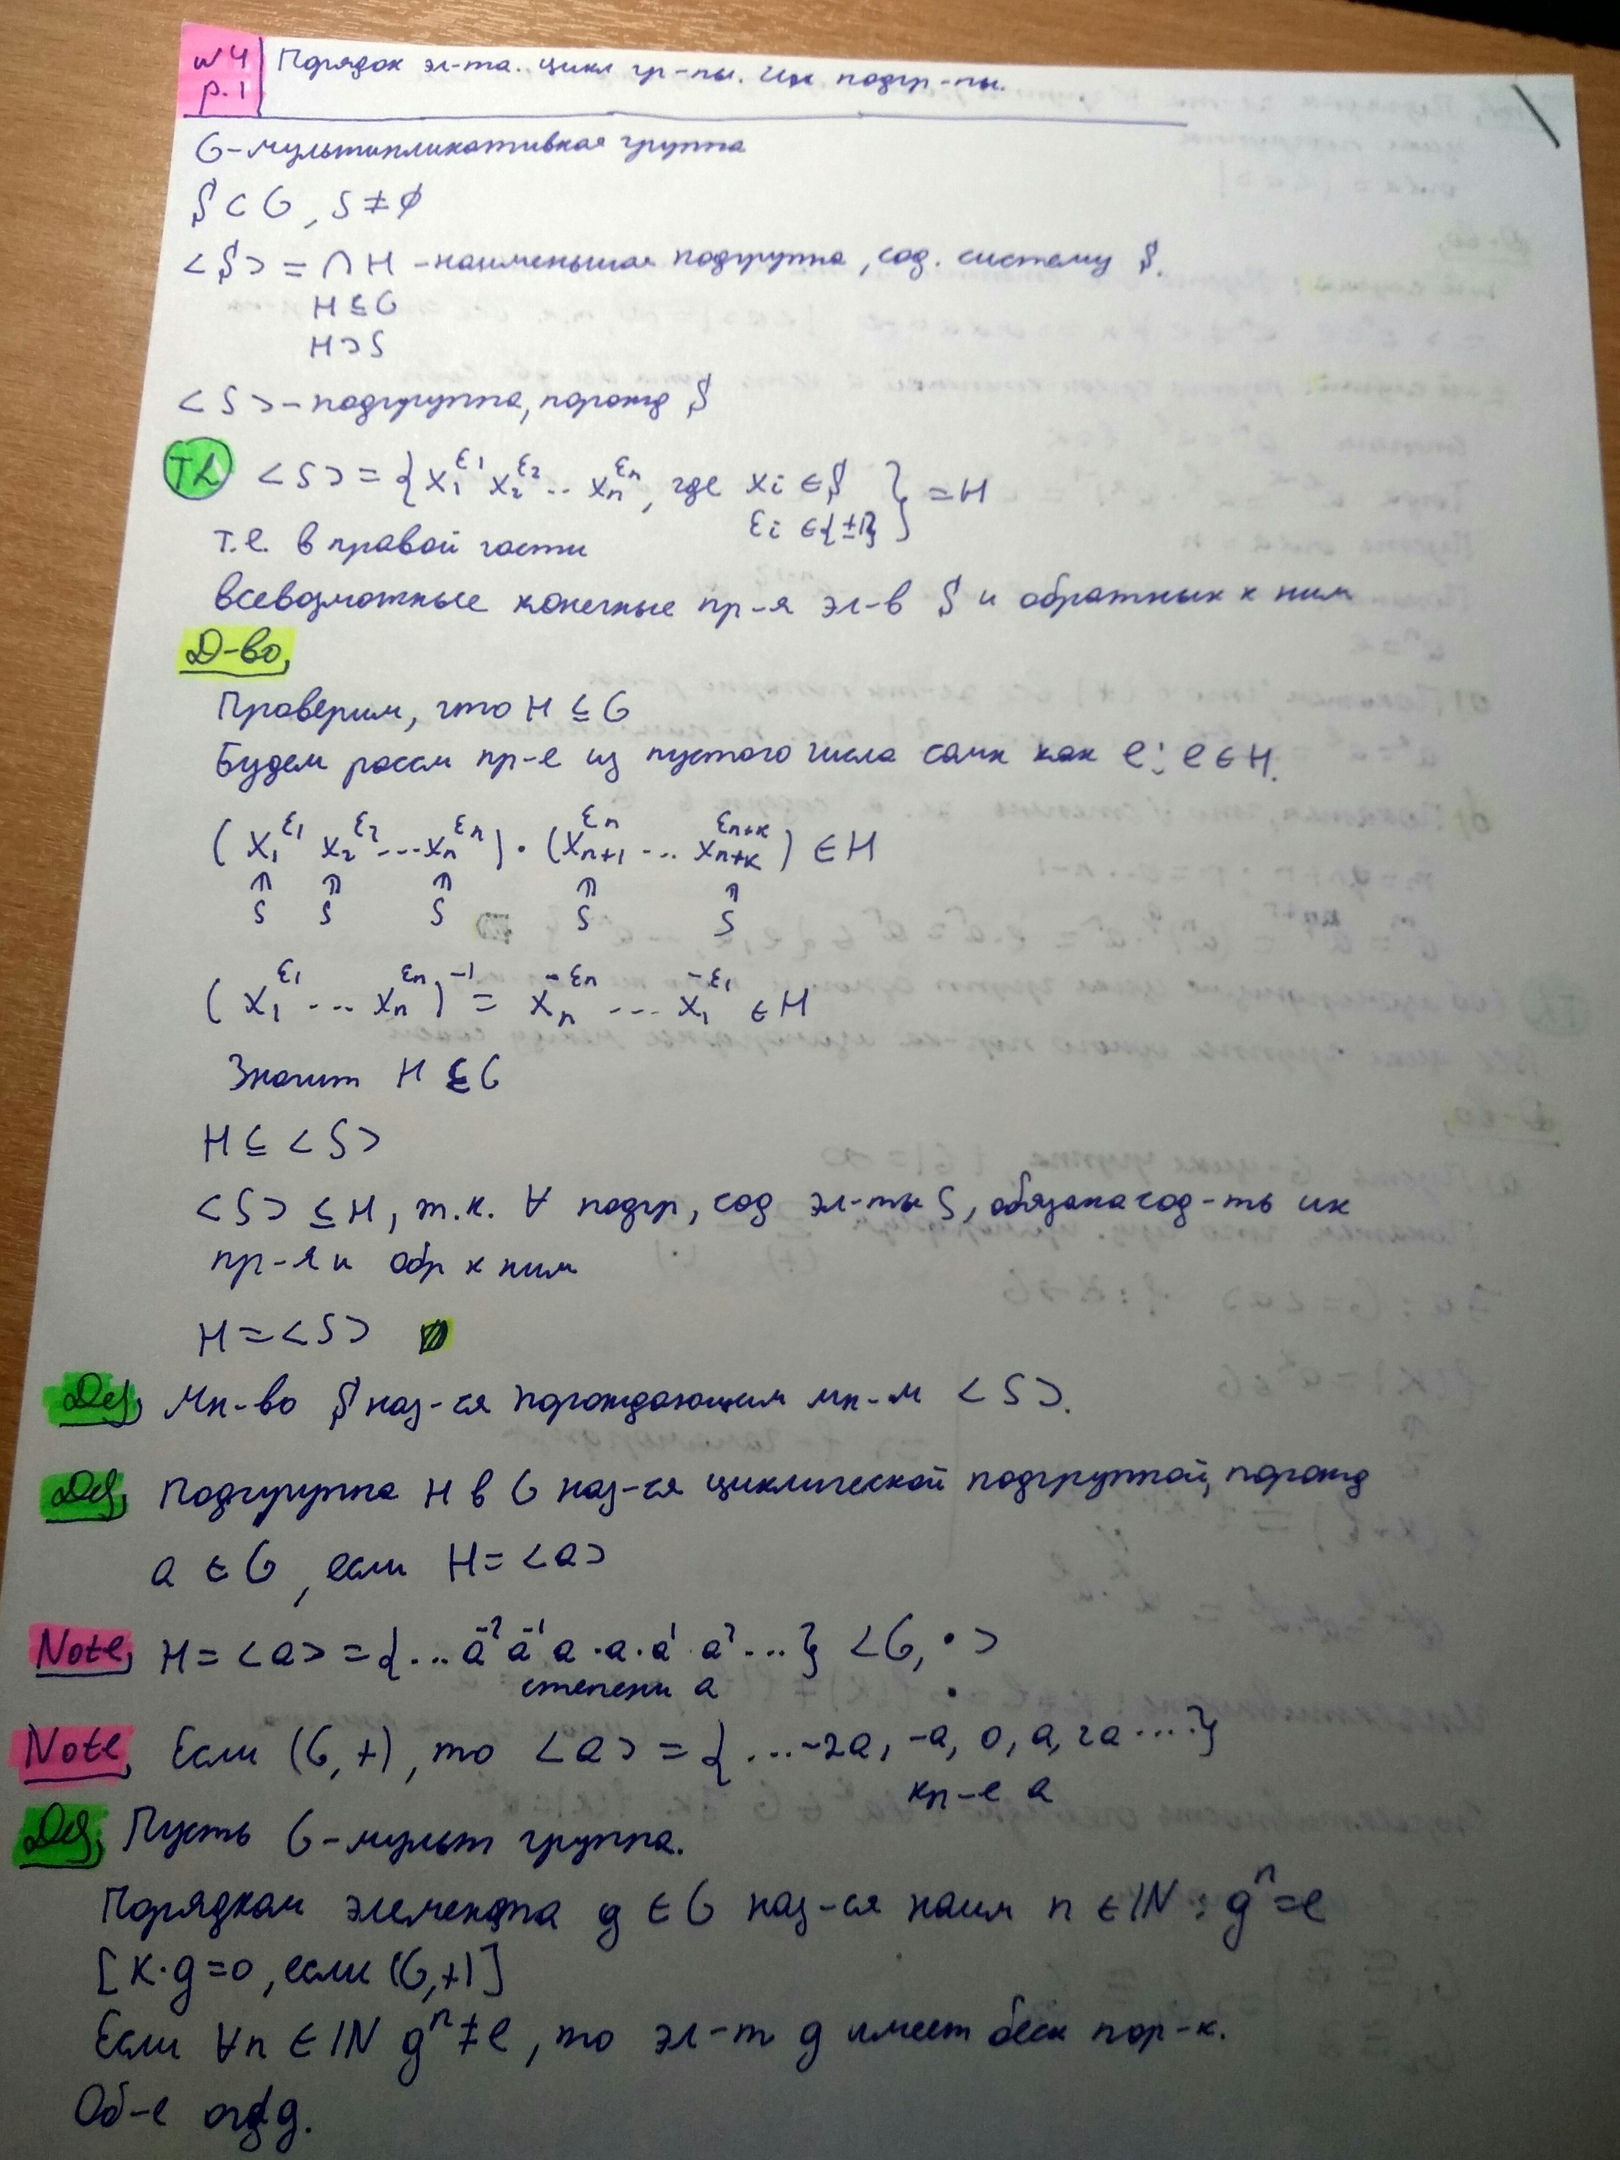 №4 р.1 Порядок эл-та. цикл гр-пы. Их подгр-пы.
G-мультипликативная группа
S ⊂ G, S ≠ ∅
<S> = ∩ H - наименьшая подгруппа, сод. систему S.
H ⊆ G
H ⊃ S
<S> - подгруппа, порожд S
<S> = { x₁^ε₁ x₂^ε₂ ... xₙ^εₙ, где xᵢ ∈ S } = H
εᵢ ∈ {±1}
т.е. в правой части
всевозможные конечные пр-я эл-в S и обратных к ним
D-во,
Проверим, что H ⊆ G
Будем рассм пр-е из пустого числа самн как e: e ∈ H.
( x₁^ε₁ x₂^ε₂ ... xₙ^εₙ ) · ( xₙ₊₁^εₙ ... xₙ₊ₖ^εₙ₊ₖ ) ∈ H
S S S S S
( x₁^ε₁ ... xₙ^εₙ )^-1 = xₙ^-εₙ ... x₁^-ε₁ ∈ H
Значит H ⊆ G
H ⊆ <S>
<S> ⊆ H, т.к. ∀ подгр, сод эл-ты S, обязана сод-ть их
пр-я и обр к ним
H = <S>
Def, Мн-во S наз-ся порождающим мн-м <S>.
Def, Подгруппа H в G наз-ся циклической подгруппой, порожд
a ∈ G, если H = <a>
Note, H = <a> = {... a^-2 a^-1 a · a · a^1 · a^2 ...} <G, · >
степени a
Note, Если (G, +), то <a> = { ... -2a, -a, 0, a, 2a ....}
кр-е a
Def, Пусть G-мульт группа.
Порядком элемента g ∈ G наз-ся наим n ∈ ℕ : gⁿ = e
[к·g=0, если (G,+)]
Если ∀n ∈ ℕ gⁿ ≠ e, то эл-т g имеет беск пор-к.
Об-е ord g.